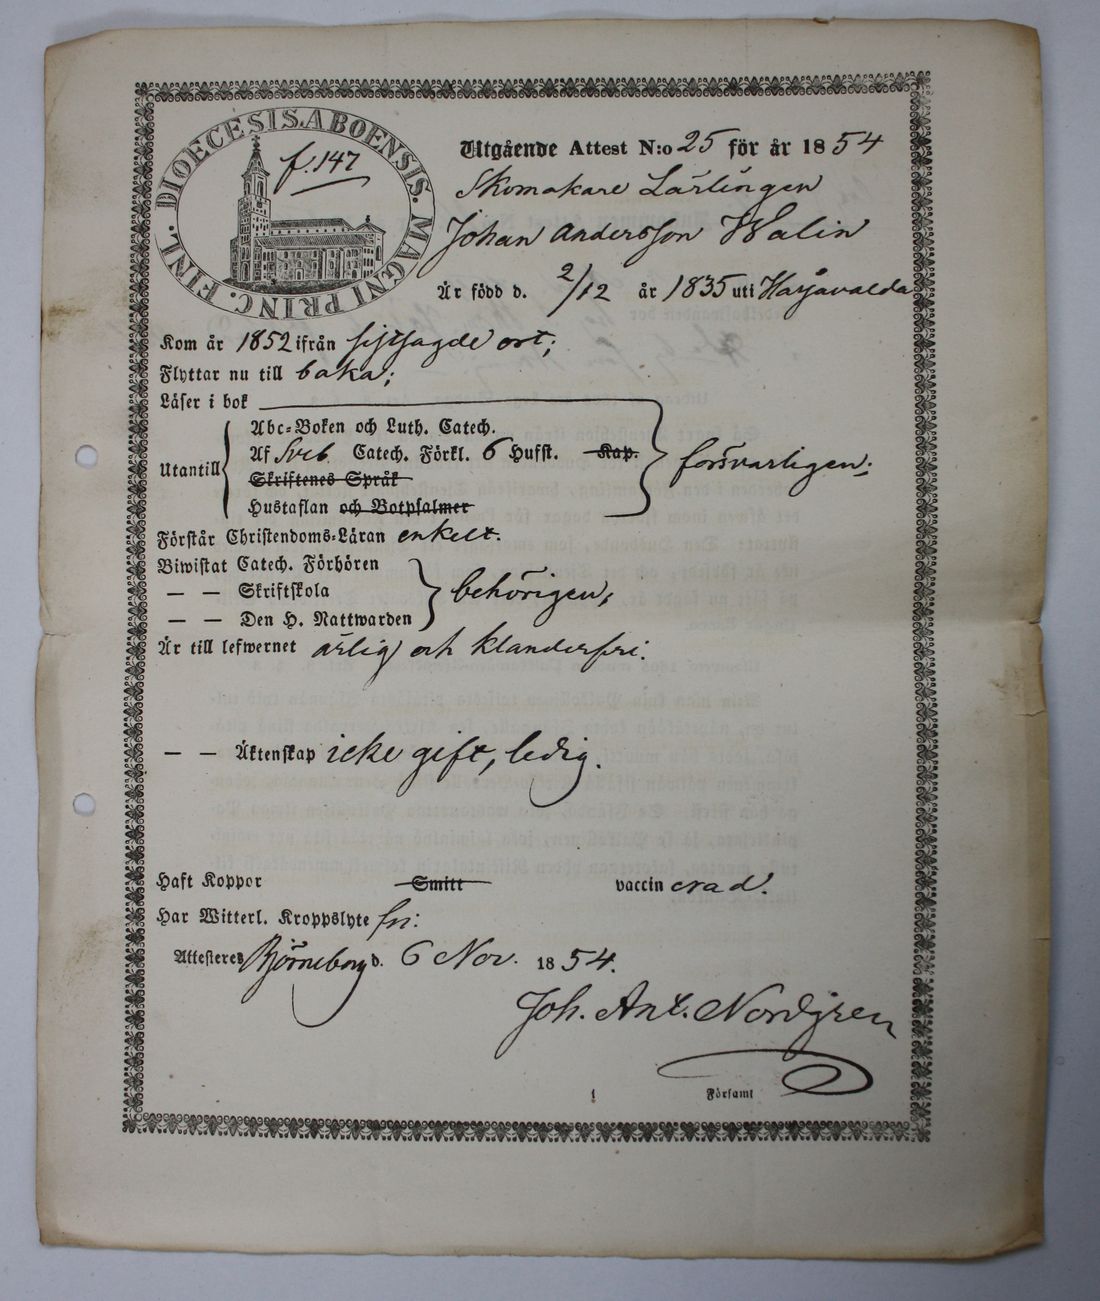 DIOECESIS. ABOENSIS. MAGNI PRINC. FINL.
f. 147
Utgående Attest N:o 25 för år 1854
Skomakare Lärlingen
Johan Andersson Walin
Är född d. 2/12 år 1835 uti Harjavalda
Kom år 1852 ifrån sistsagde ort;
Flyttar nu till baka;
Läser i bok
Abc-Boken och Luth. Catech.
Utantill Af Sveb. Catech. Förkl. 6 Hufst. Kap. försvarligen:
Skriftenes Språk
Hustaflan och Botpsalmer
Förstår Christendoms-Läran enkelt.
Biwistat Catech. Förhören
— — Skriftskola behörigen;
— — Den H. Nattwarden
Är till lefwernet ärlig och klanderfri.
— — Äktenskap icke gift, ledig.
Haft Koppor Smitt vaccinerad.
Har Witterl. Kroppslyte fri:
Attesteres Björneborg d. 6 Nov. 1854.
Joh. Ant. Nordgren
1 Församl